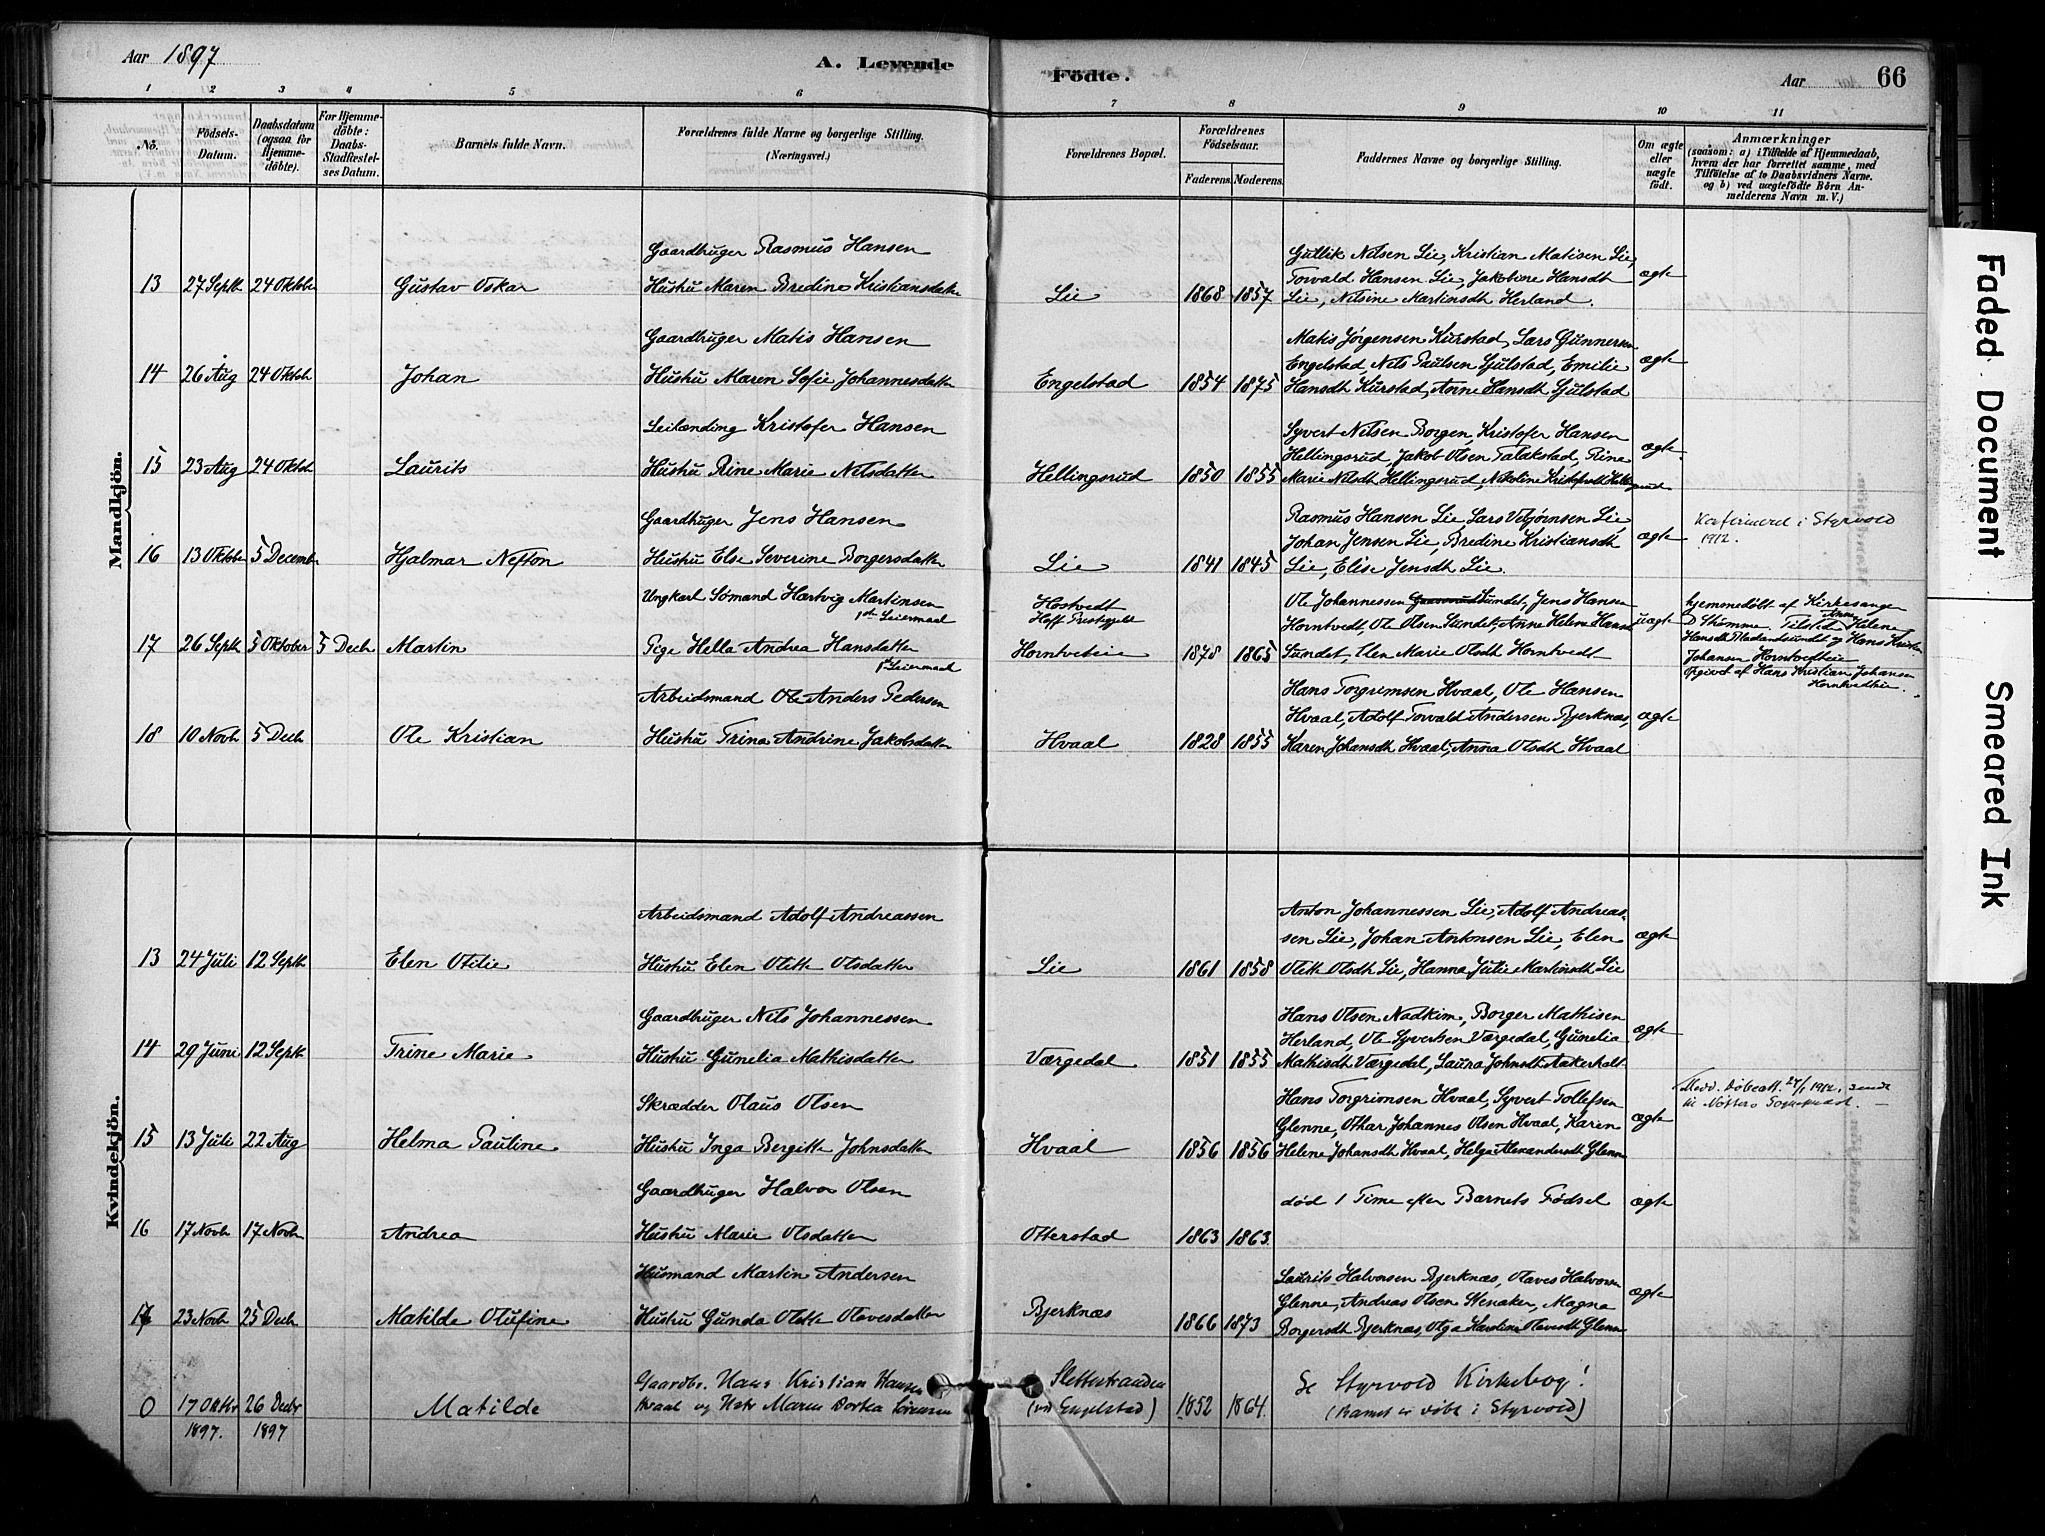 Aar 1897
A. Levende
Födte.
Aar
66
1 2 3 4 5 6 7 8 9 10 11
No.
Födsels-
Datum.
Daabsdatum
(ogsaa for
Hjemme-
döbte).
For Hjemme-
döbte:
Daabs-
Stadfæstel-
ses Datum.
Barnets fulde Navn.
Forældrenes fulde Navne og borgerlige Stilling.
(Næringsvei.)
Forældrenes Bopæl.
Forældrenes
Födselsaar.
Faderens. Moderens.
Faddernes Navne og borgerlige Stilling.
Om ægte
eller
uægte
födt.
Anmærkninger
(saasom: a) i Tilfælde af Hjemmedaab,
hvem der har forrettet samme, med
Tilföielse af to Daabsvidners Navne.
og b) ved uægtefödte Börn An-
melderens Navn m. V.)
Mandkjön.
Gaardbruger Rasmus Hansen
Gullik Nilsen Lie, Kristian Matisen Lie,
Torvald Hansen Lie, Jakobine Hansdt
13 27 Septb 24 Oktobr Gustav Oskar Hustru Maren Bredine Kristiansdatter Lie 1868 1857 Lie, Nilsine Martinsdt Herland. ægte
Gaardbruger Matis Hansen
Matis Jørgensen Kurstad, Lars Gunnersen
Engelstad, Nils Paulsen Gulstad, Emilie
14 26 Aug 24 Oktob Johan Hustru Maren Sofie Johannesdatter Engelstad 1854 1875 Hansdt Kurstad, Anne Hansdt Gulstad ægte
Leilending Kristofer Hansen
Syvert Nilsen Borgen, Kristofer Hansen
Hellingsrud, Jakob Olsen Talakstad, Rine
15 23 Aug 24 Oktob Laurits Hustru Rine Marie Nilsdatter Hellingsrud 1850 1855 Marie Nilsdt Hellingsrud, Nikoline Kristofdt Hellingsrud ægte
Gaardbruger Jens Hansen
Rasmus Hansen Lie, Lars Vebjørnsen Lie,
Johan Jensen Lie, Bredine Kristiansdt
16 13 Oktobr 5 Decembr Hjalmar Nefton Hustru Else Severine Borgersdatter Lie 1841 1845 Lie, Elise Jensdt Lie. ægte
Konfirmered i Styrvold
1912.
Ungkarl Sømand Hartvig Martinsen
1ste Leiermaal
Hostvedt
Hoff Prestegjeld
Ole Johannessen Sundet, Jens Hansen
Horntvedt, Ole Olsen Sundet, Anne Helene Hansd
17 26 Septb 5 Oktober 5 Decb Martin Pige Hella Andrea Hansdatter Horntveteie 1878 1865 Sundet, Elen Marie Olsdt Horntvedt uægte
1ste Leiermaal
hjemmedøbt af Kirkesanger
D Stumme. Tilsted Anne Helene
Hansdt og Hans Kristian
Johansen Horntvedteie
Opgivet af Hans Kristian Johansen
Horntvedteie.
Arbeidsmand Ole Anders Pedersen
Hans Torgrimsen Hvaal, Ole Hansen
Hvaal, Adolf Torvald Andersen Bjerknæs,
18 10 Novb 5 Decb Ole Kristian Hustru Trina Andrine Jakobsdatter Hvaal 1828 1855 Karen Johansdt Hvaal, Anna Olsdt Hvaal ægte
Kvindekjön.
Arbeidsmand Adolf Andreassen
Anton Johannessen Lie, Adolf Andreas-
sen Lie, Johan Antonsen Lie, Elen
13 24 Juli 12 Septb Elen Otilie Hustru Elen Olette Olsdatter Lie 1861 1858 Olette Olsdt Lie, Hanna Julie Martinsdt Lie ægte
Gaardbruger Nils Johannessen
Hans Olsen Nadkim, Borger Mathisen
Herland, Ole Syvertsen Værgedal, Gunelia
14 29 Juni 12 Septb Trine Marie Hustru Gunelia Mathisdatter Værgedal 1851 1855 Mathisdt Værgedal, Laura Johnsdt Aakerholt ægte
Skrædder Olaus Olsen
Hans Torgrimsen Hvaal, Syvert Tollefsen
Glenne, Othar Johannes Olsen Hvaal, Karen
15 13 Juli 22 Aug Helma Pauline Hustru Inga Bergitte Johnsdatter Hvaal 1856 1856 Helene Johansdt Hvaal, Helga Alexandersdt Glenne ægte
Medd. Døbeatt. 27/1 1912, sendt
til Nøtterø Sogneprest.
Gaardbruger Halvor Olsen
død 1 Time efter Barnets Fødsel ægte
16 17 Novb 17 Novb Andrea Hustru Marie Olsdatter Otterstad 1863 1863.
Husmand Martin Andersen
Laurits Halvorsen Bjerknæs, Olaves Halvorsen
Glenne, Andreas Olsen Stenaker, Magna
17 23 Novb 25 Decb Matilde Olufine Hustru Gunda Olette Olavesdatter Bjerknæs 1866 1873 Borgersdt Bjerknæs, Olga Karoline Olavesdt Glenne ægte
Gaardbr. Hans Kristian Hansen
Slettestranden
Se Styrvold Kirkebog!
0 17 Oktbr 26 Decbr Matilde Hvaal og Hstr Maren Dortea Sørensen (ved Engelstad) 1852 1864. (Barnet er døbt i Styrvold)
1897. 1897
Faded Document
Smeared Ink